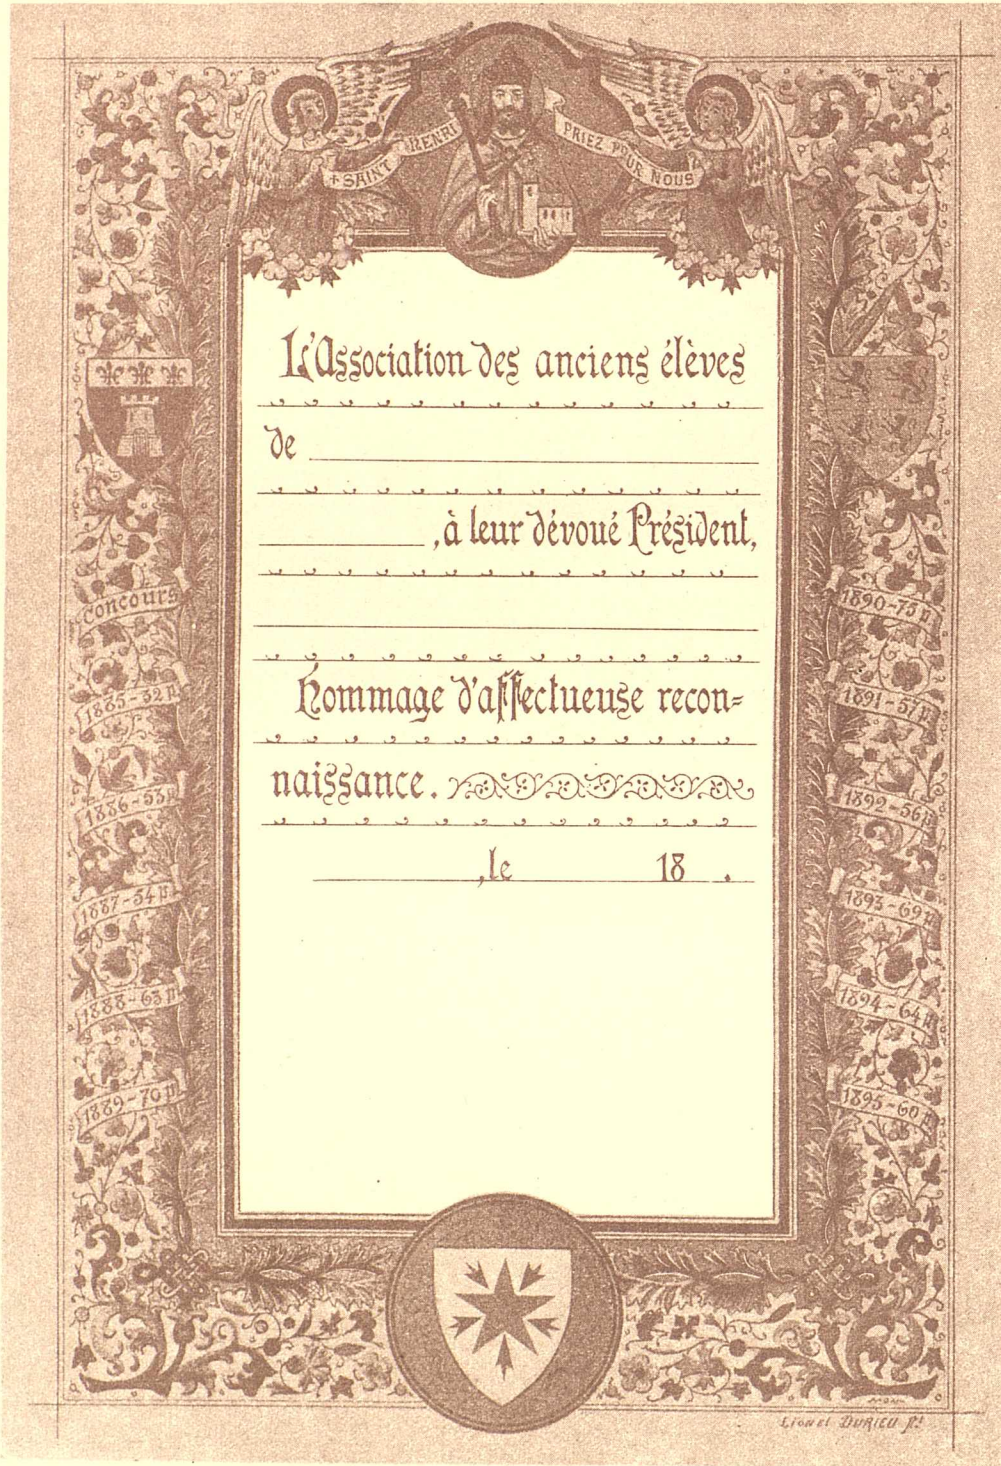 + SAINT HENRI PRIEZ POUR NOUS
L'Association des anciens élèves
de
, à leur dévoué Président,
Hommage d'affectueuse recon=
naissance.
, le 18 .
Concours
1885-52 p
1886-53 p
1887-54 p
1888-63 p
1889-70 p
1890-75 p
1891-57 p
1892-56 p
1893-69 p
1894-64 p
1895-60 p
Lionel DURIEU Pt